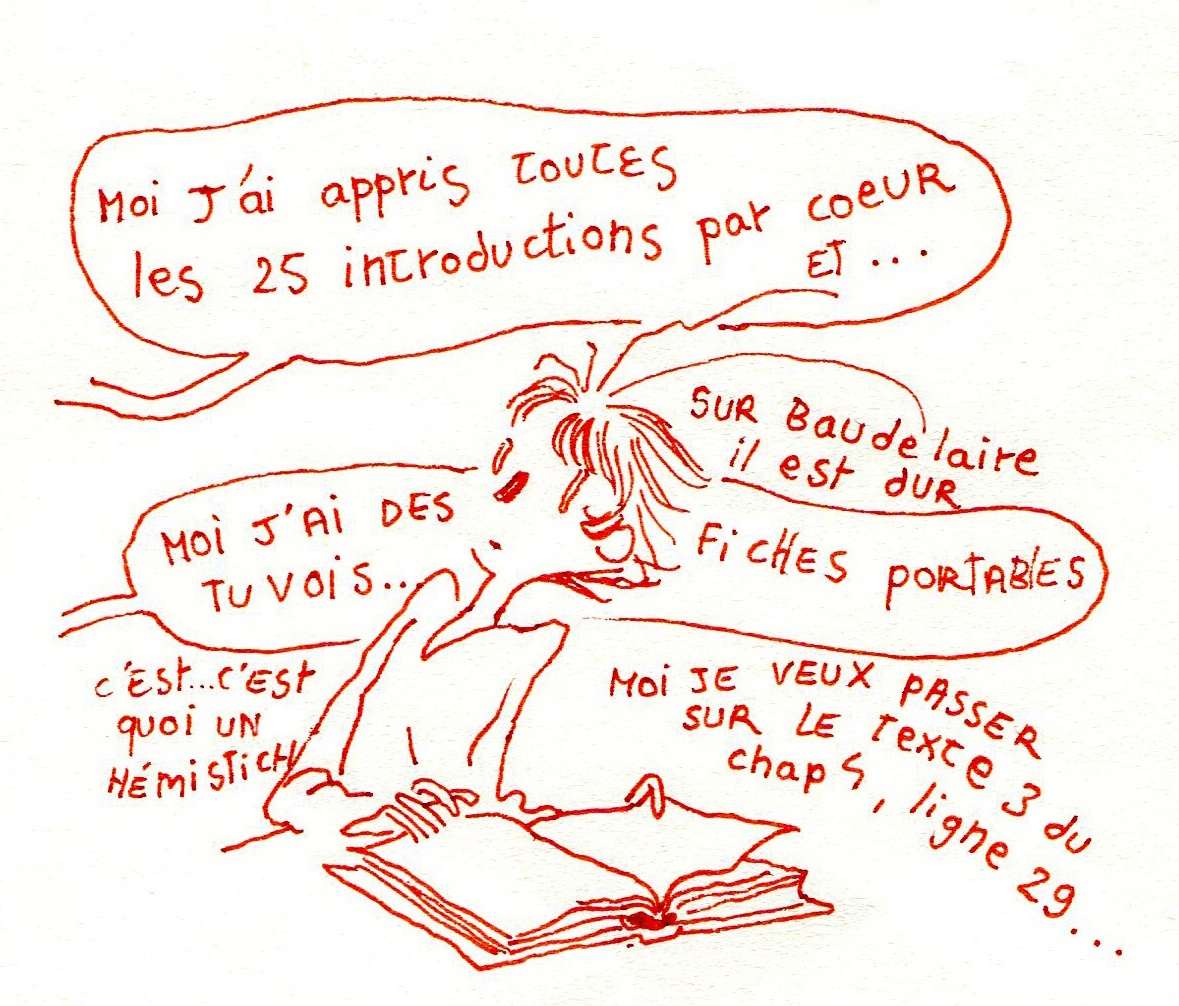 Moi J'ai appris TOUTES
les 25 introductions par coeUR
ET ...
SUR Baudelaire
il est dUR
Moi J'Ai DES
TU VOiS...
FiCHES PORTABlES
C'EST...C'EST
quoi UN
HÉMiSTiCH
Moi JE VEUX PASSER
SUR LE Texte 3 du
chap 5, ligne 29...